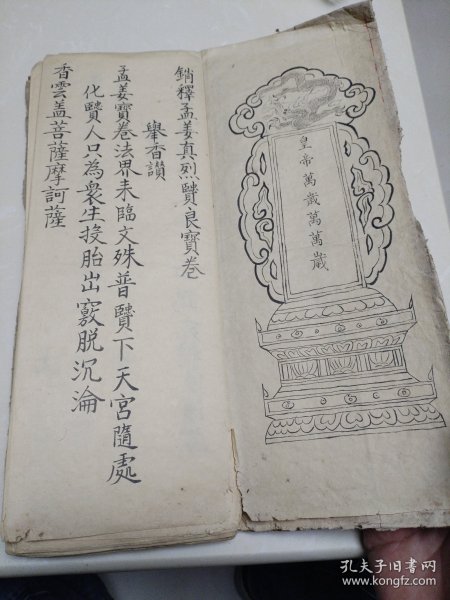 皇帝萬歲萬萬歲
銷釋孟姜真烈賢良寶卷
舉香讚
孟姜寶卷法界来臨文殊普賢下天宮隨處
化賢人只為衆生投胎出竅脫沉淪
香雲盖菩薩摩訶薩
孔夫子旧书网
www.kongfz.com